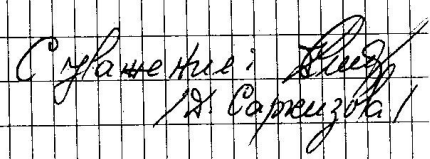 С уважение:
/Д. Саркизова/